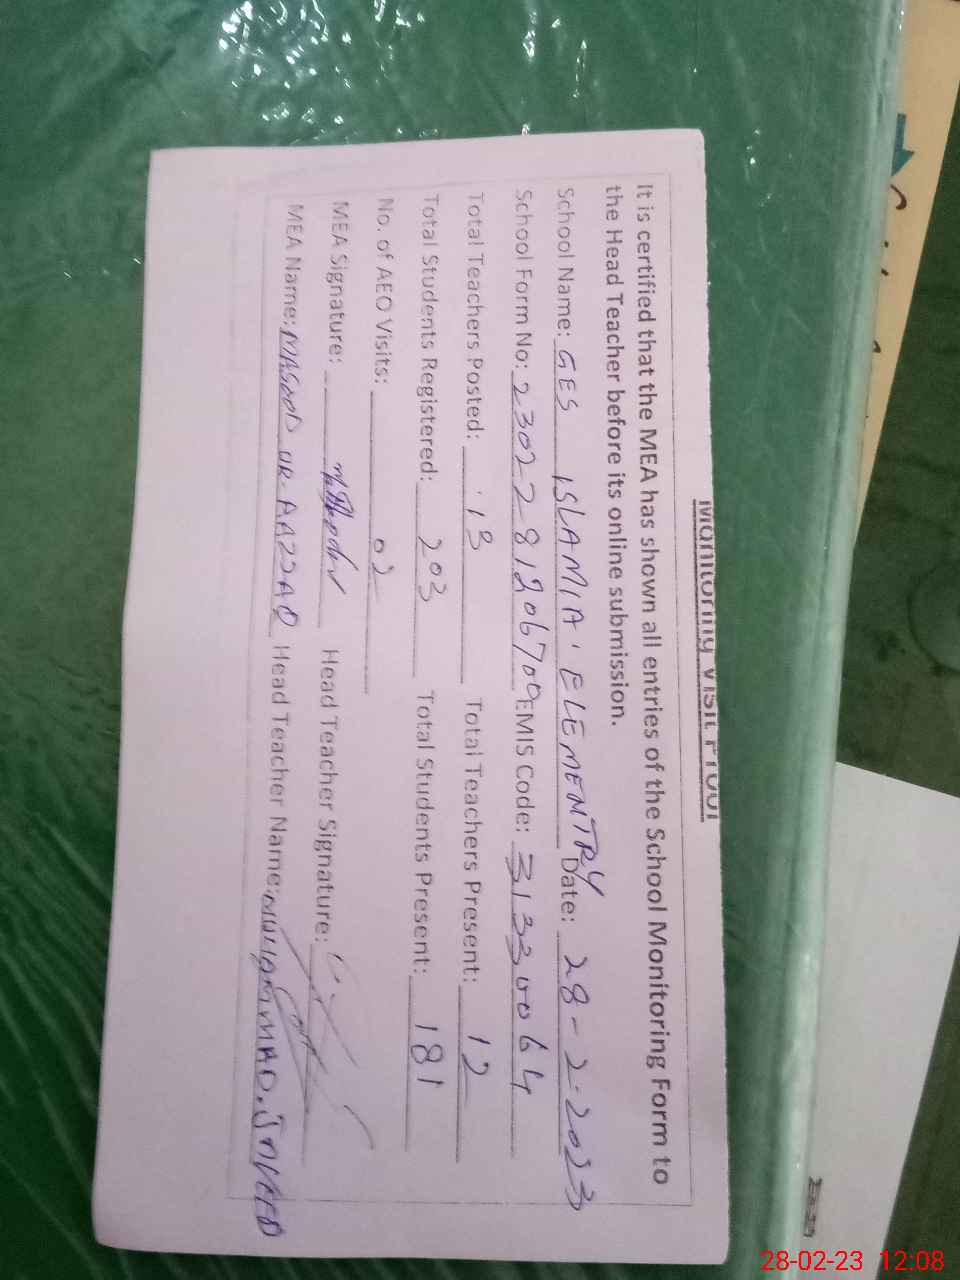 Monitoring Visit Proof
It is certified that the MEA has shown all entries of the School Monitoring Form to
the Head Teacher before its online submission.
School Name: GES ISLAMIA ELEMENTRY Date: 28-2-2023
School Form No: 2302281206700 EMIS Code: 31330064
Total Teachers Posted: 13 Total Teachers Present: 12
Total Students Registered: 203 Total Students Present: 181
No. of AEO Visits: 02
MEA Signature: Head Teacher Signature:
MEA Name: MASOOD UR. RAZZAQ Head Teacher Name: MUHAMMAD. JAVEED
28-02-23 12:08